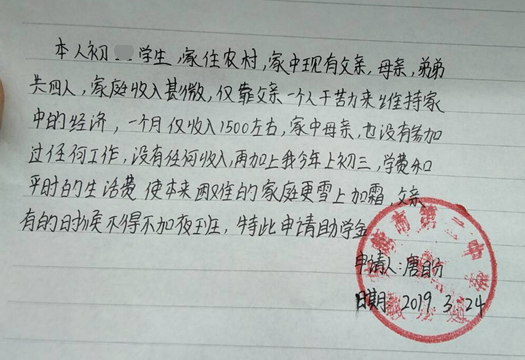 本人初 学生,家住农村,家中现有父亲,母亲,弟弟
共四人,家庭收入甚微,仅靠父亲一个人干苦力来维持家
中的经济,一个月仅收入1500左右,家中母亲,也没有参加
过任何工作,没有任何收入,再加上我今年上初三,学费和
平时的生活费 使本来困难的家庭更雪上加霜,父亲
有的时候不得不加夜班,特此申请助学金
申请人:唐
日期: 2019. 3. 24
市第二